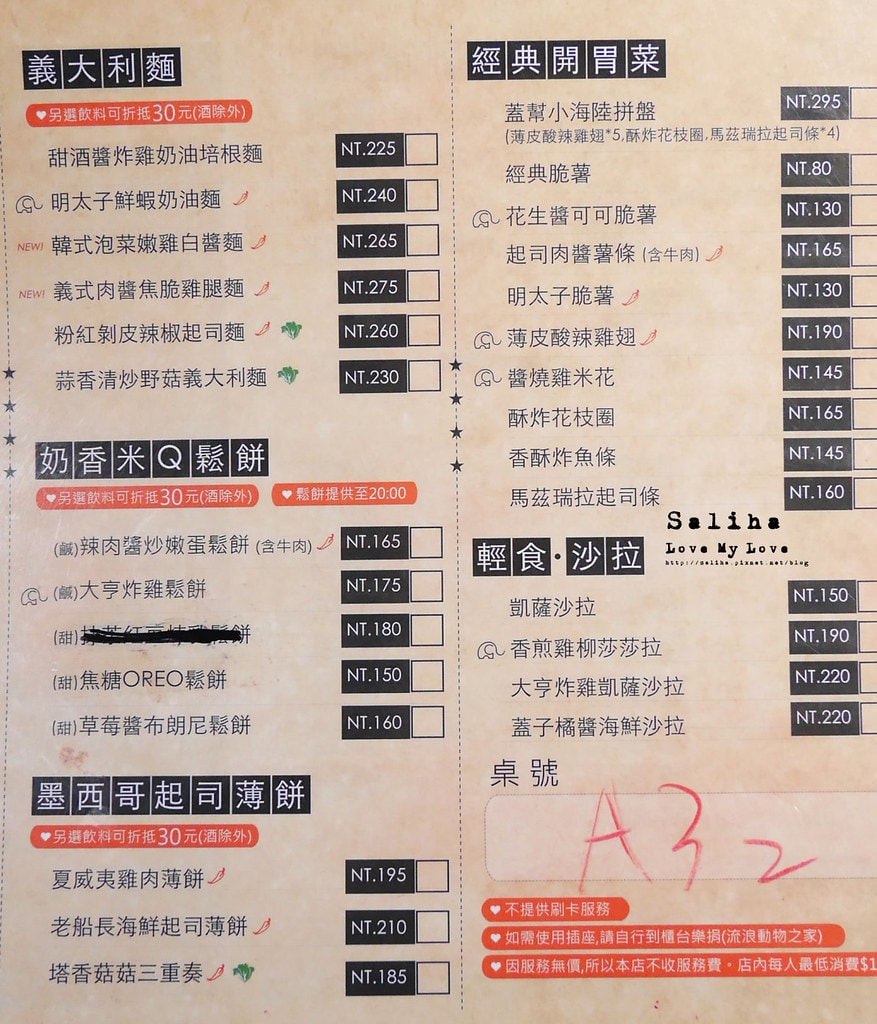 義大利麵
♥另選飲料可折抵30元(酒除外)
甜酒醬炸雞奶油培根麵 NT.225
明太子鮮蝦奶油麵 NT.240
NEW! 韓式泡菜嫩雞白醬麵 NT.265
NEW! 義式肉醬焦脆雞腿麵 NT.275
粉紅剝皮辣椒起司麵 NT.260
蒜香清炒野菇義大利麵 NT.230
奶香米Q鬆餅
♥另選飲料可折抵30元(酒除外) ♥鬆餅提供至20:00
(鹹)辣肉醬炒嫩蛋鬆餅(含牛肉) NT.165
(鹹)大亨炸雞鬆餅 NT.175
(甜) 餅 NT.180
(甜)焦糖OREO鬆餅 NT.150
(甜)草莓醬布朗尼鬆餅 NT.160
墨西哥起司薄餅
♥另選飲料可折抵30元(酒除外)
夏威夷雞肉薄餅 NT.195
老船長海鮮起司薄餅 NT.210
塔香菇菇三重奏 NT.185
經典開胃菜
蓋幫小海陸拼盤 NT.295
(薄皮酸辣雞翅*5,酥炸花枝圈,馬茲瑞拉起司條*4)
經典脆薯 NT.80
花生醬可可脆薯 NT.130
起司肉醬薯條(含牛肉) NT.165
明太子脆薯 NT.130
薄皮酸辣雞翅 NT.190
醬燒雞米花 NT.145
酥炸花枝圈 NT.165
香酥炸魚條 NT.145
馬茲瑞拉起司條 NT.160
Saliha
Love My Love
http://saliha.pixnet.net/blog
輕食·沙拉
凱薩沙拉 NT.150
香煎雞柳莎莎拉 NT.190
大亨炸雞凱薩沙拉 NT.220
蓋子橘醬海鮮沙拉 NT.220
桌號
A32
♥不提供刷卡服務
♥如需使用插座,請自行到櫃台樂捐(流浪動物之家)
♥因服務無價,所以本店不收服務費。店內每人最低消費$1